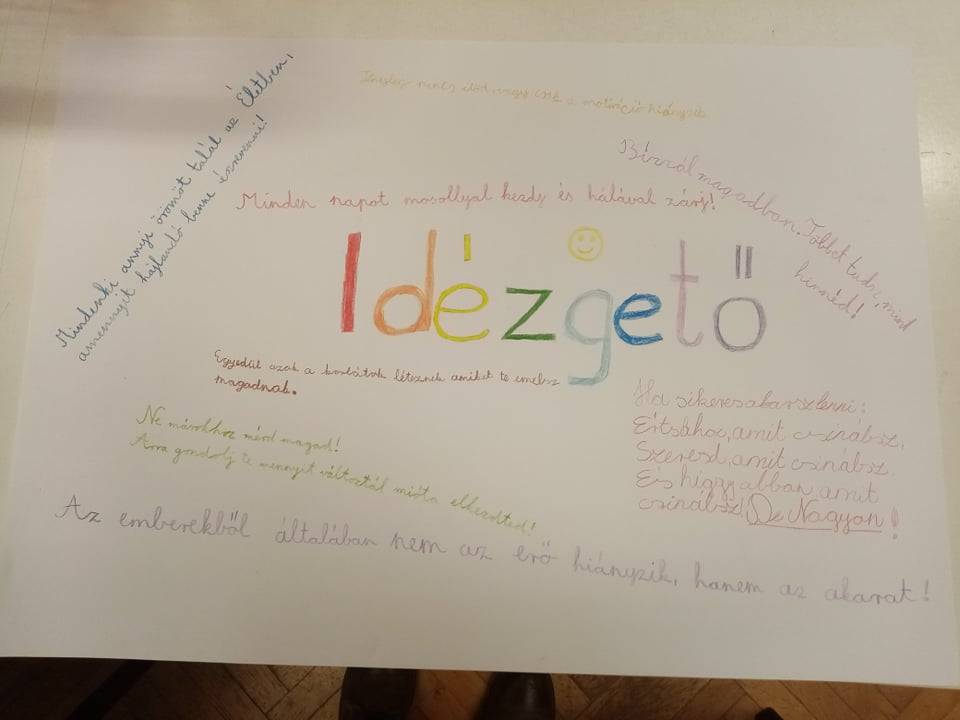 Mindenki annyi örömöt talál az Életben,
amennyit hajlandó benne észrevenni!
nincs előd, vagy csak a motiváció hiányzik
Bízzál magadban. Többet tudsz, mind
hinnéd!
Minden napot mosollyal kezdj és hálával zárj!
Idézgető
Egyedül azok a korlátok léteznek amiket te emelsz
magadnak.
Ha sikeresakarszlenni:
Értsdhoz, amit csinálsz.
Szeresd, amit csinálsz.
És higgy abban, amit
csinálsz! De Nagyon!
Ne másokhoz mérd magad!
Arra gondolj te mennyit változtál mióta elkezdted!
Az emberekből általában nem az erő hiányzik, hanem az akarat!